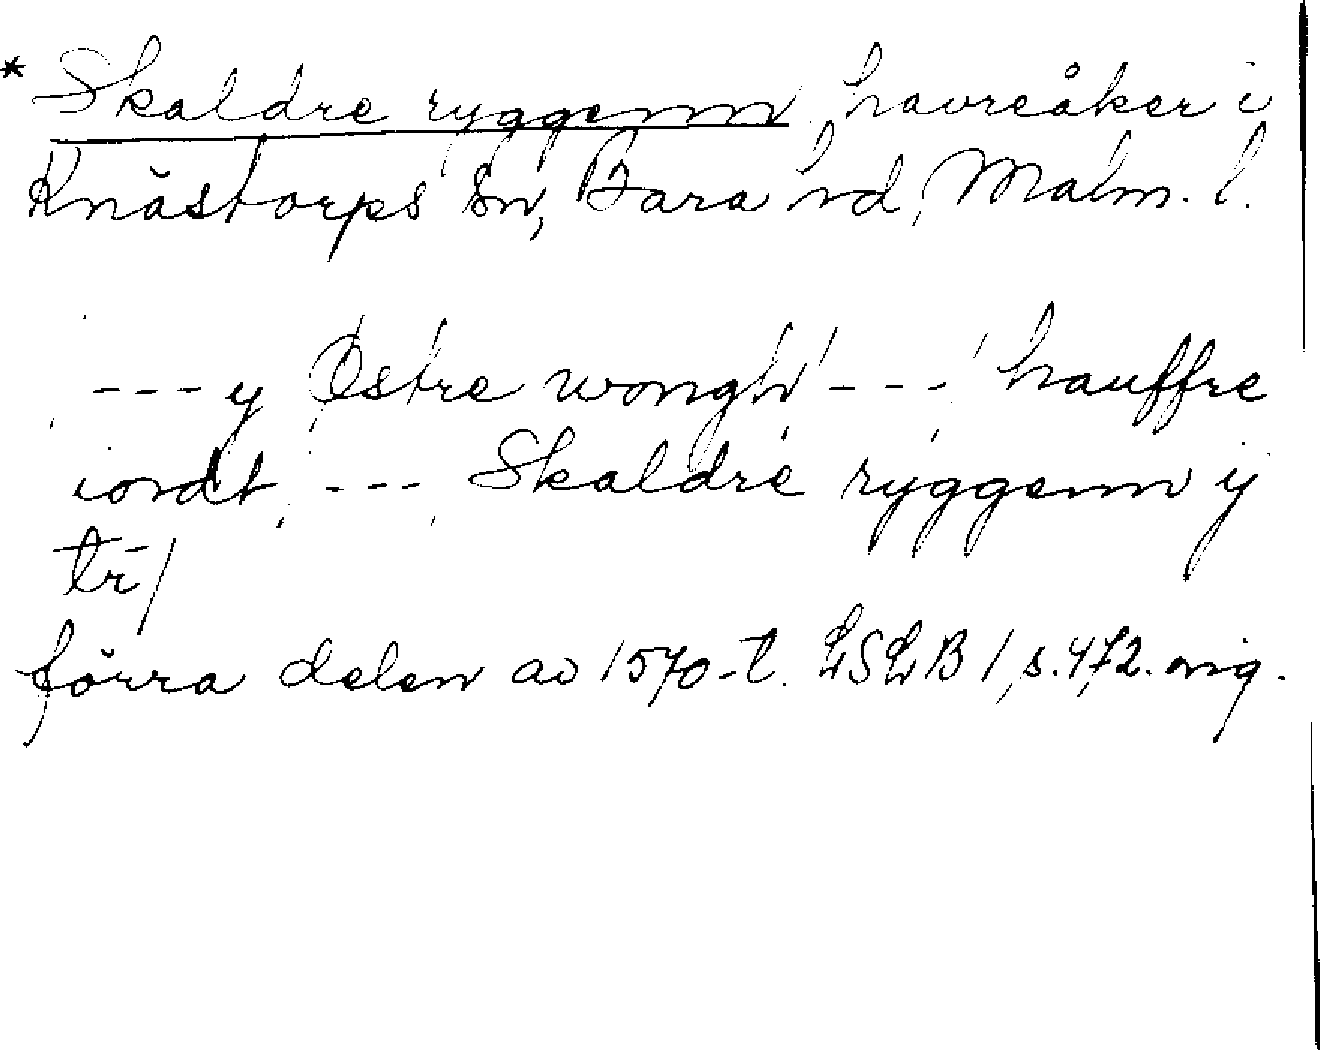 * Skaldre ryggenn, havreåker i
Knästorps sn, Bara hd, Malm. l.
--- y Østre wongh --- hauffre
iordt --- Skaldre ryggenn ij
tr /
förra delen av 1570-t. LSLB 1, s. 472. orig.